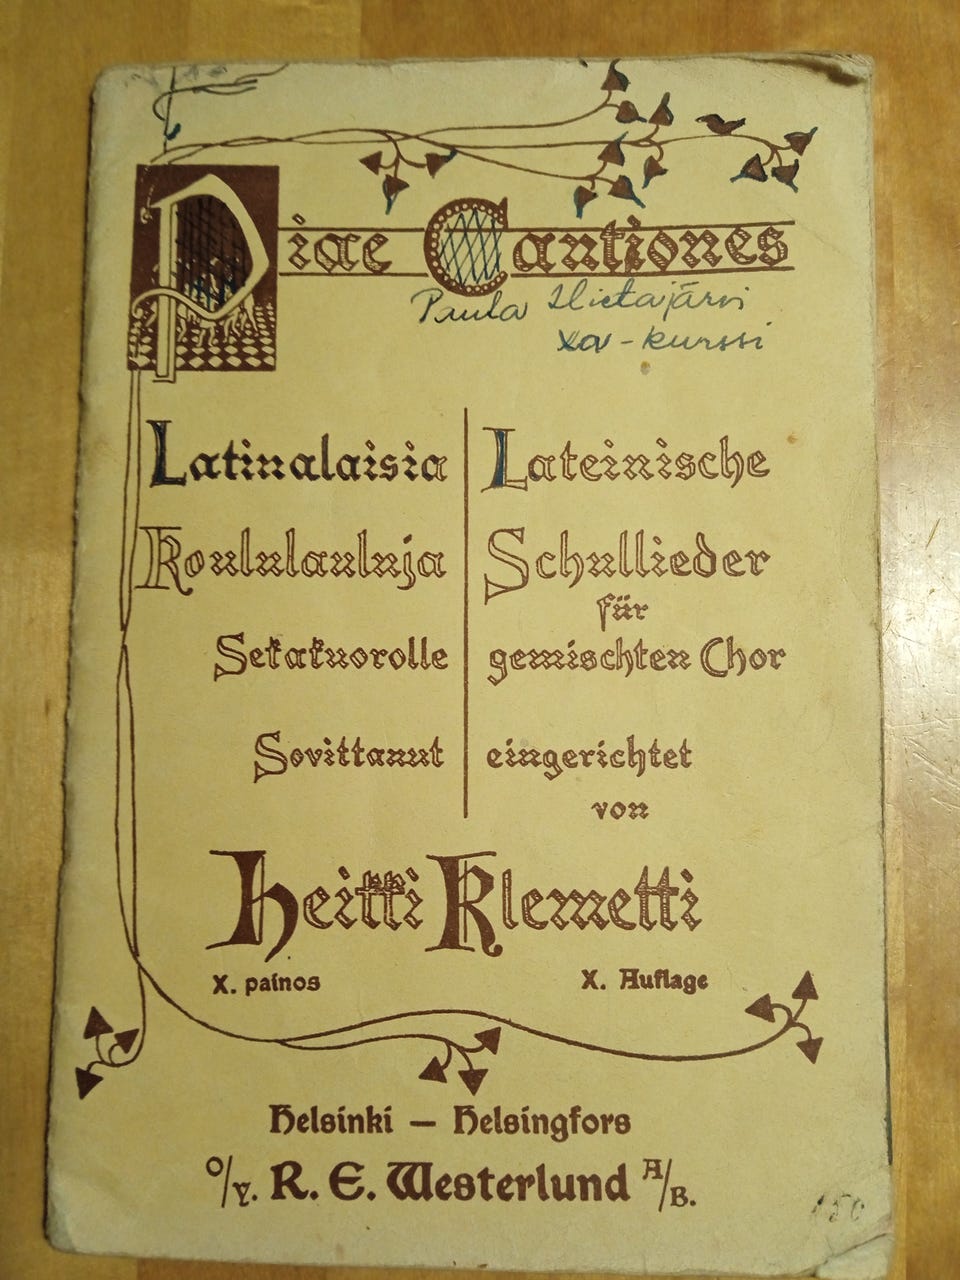 Piae Cantiones
Paula Hietajärvi
Xa-kurssi
Latinalaisia
Koululauluja
Sekakuorolle
Sovittanut
Lateinische
Schullieder
für
gemischten Chor
eingerichtet
von
Heikki Klemetti
X. painos
X. Auflage
Helsinki — Helsingfors
O/Y. R. E. Westerlund A/B.
150